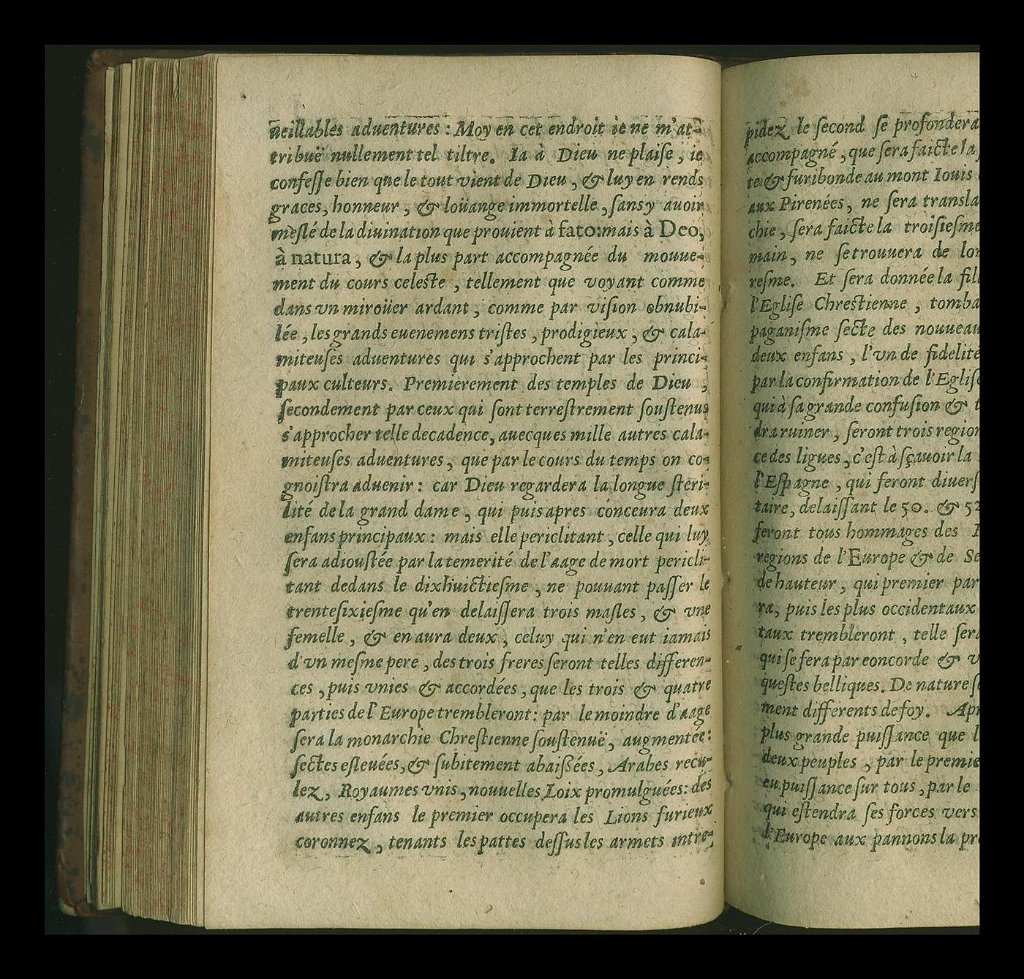 ueillables aduentures : Moy en cet endroit ie ne m'at-
tribuë nullement tel tiltre. Ia à Dieu ne plaise, ie
confesse bien que le tout vient de Dieu, & luy en rends
graces, honneur, & loüange immortelle, sans y auoir
meslé de la diuination que prouient à fato: mais à Deo,
à natura, & la plus part accompagnée du mouue-
ment du cours celeste, tellement que voyant comme
dans vn miroüer ardant, comme par vision obnubi-
lée, les grands euenemens tristes, prodigieux, & cala-
miteuses aduentures qui s'approchent par les princi-
paux culteurs. Premierement des temples de Dieu,
secondement par ceux qui sont terrestrement soustenus
s'approcher telle decadence, auecques mille autres cala-
miteuses aduentures, que par le cours du temps on co-
gnoistra aduenir : car Dieu regardera la longue steri-
lité de la grand dame, qui puis apres conceura deux
enfans principaux : mais elle periclitant, celle qui luy
sera adioustée par la temerité de l'aage de mort pericli-
tant dedans le dixhuictiesme, ne pouuant passer le
trentesixiesme qu'en delaissera trois masles, & vne
femelle, & en aura deux, celuy qui n'en eut iamais
d'vn mesme pere, des trois freres seront telles differen-
ces, puis vnies & accordées, que les trois & quatre
parties de l'Europe trembleront: par le moindre d'aage
sera la monarchie Chrestienne soustenuë, augmentée:
sectes esleuées, & subitement abaissées, Arabes recu-
lez, Royaumes vnis, nouuelles Loix promulguées: des
autres enfans le premier occupera les Lions furieux
coronnez, tenants les pattes dessus les armets intre-
pidez le second se profondera
accompagné, que sera faicte la
te & furibonde au mont Iouis
aux Pirenées, ne sera transla
chie, sera faicte la troisiesme
main, ne se trouuera de lon
resme. Et sera donnée la fil
l'Eglise Chrestienne, tomba
paganisme secte des nouueau
deux enfans, l'vn de fidelité
par la confirmation de l'Eglise
qui à sa grande confusion &
dra ruiner, seront trois region
ce des ligues, c'est à sçauoir la
l'Espagne, qui feront diuers
taire, delaissant le 50. & 52
feront tous hommages des
regions de l'Europe & de Se
de hauteur, qui premier par
ra, puis les plus occidentaux
taux trembleront, telle sera
qui se fera par concorde & v
questes belliques. De nature s
ment differents de foy. Apr
plus grande puissance que l
deux peuples, par le premie
eu puissance sur tous, par le
qui estendra ses forces vers
l'Europe aux pannons la pr